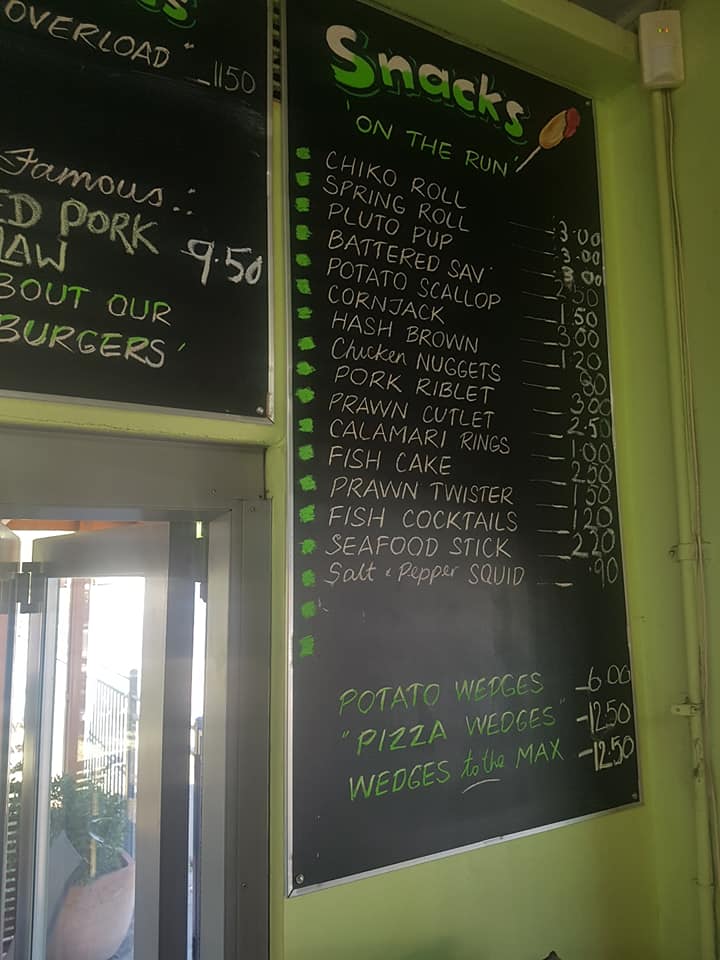 OVERLOAD" _1150
Famous:
ED PORK
LAW 9.50
BOUT OUR
BURGERS'
Snacks
'ON THE RUN'
CHIKO ROLL 3.00
SPRING ROLL 3.00
PLUTO PUP 3.00
BATTERED SAV' 2.50
POTATO SCALLOP 1.50
CORNJACK 3.00
HASH BROWN 1.20
Chicken NUGGETS .80
PORK RIBLET 3.00
PRAWN CUTLET 2.50
CALAMARI RINGS 1.00
FISH CAKE 2.50
PRAWN TWISTER 1.50
FISH COCKTAILS 1.20
SEAFOOD STICK 2.20
Salt & Pepper SQUID .90
POTATO WEDGES 6.00
"PIZZA WEDGES" -12.50
WEDGES to the MAX -12.50